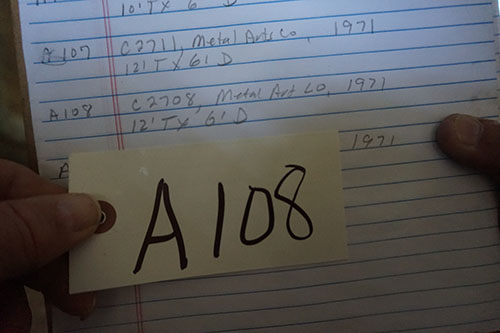 10' TX 6' D
A107 C2711, Metal Arts Co, 1971
12' TX 6' D
A108 C2708, Metal Art Co, 1971
12' TX 6' D
A 1971
A108